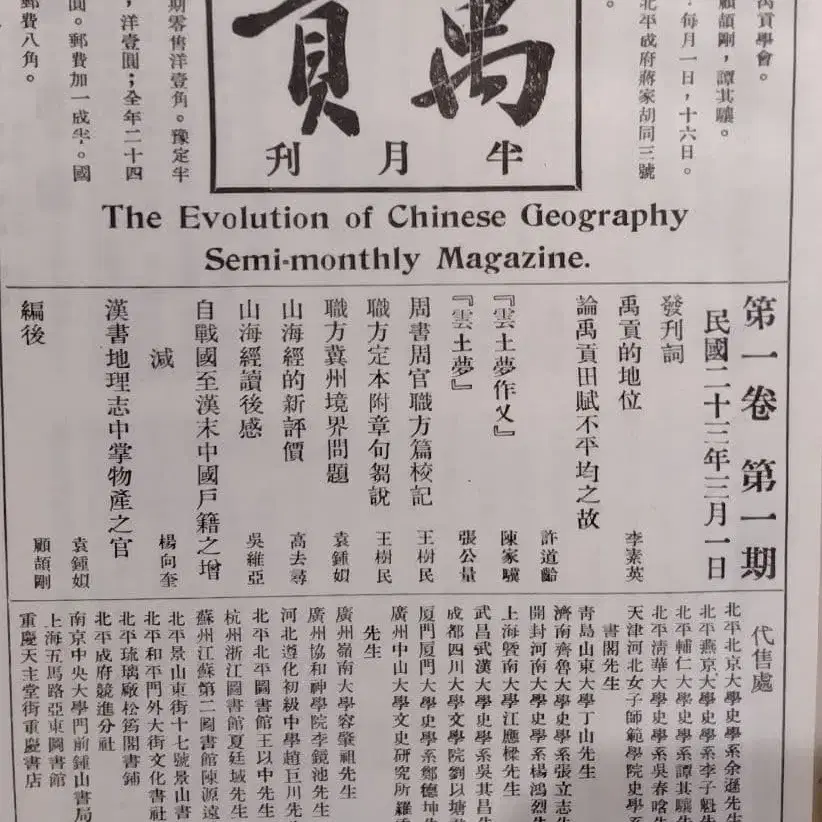 禹貢學會。
顧頡剛，譚其驤。
：每月一日，十六日。
北平成府蔣家胡同三號
。
禹貢
半月刊
期零售洋壹角。豫定半
，洋壹圓；全年二十四
圓。郵費加一成半。國
郵費八角。
The Evolution of Chinese Geography
Semi-monthly Magazine.
第一卷 第一期
民國二十三年三月一日
發刊詞
禹貢的地位 李素英
論禹貢田賦不平均之故 許道齡
『雲土夢作乂』 陳家驥
『雲土夢』 張公量
周書周官職方篇校記 王樹民
職方定本附章句芻說 王樹民
職方冀州境界問題 袁鍾姒
山海經的新評價 高去尋
山海經讀後感 吳維亞
自戰國至漢末中國戶籍之增
減 楊向奎
漢書地理志中掌物產之官 袁鍾姒
編後 顧頡剛
代售處
北平北京大學史學系余遜先生
北平燕京大學史學系李子魁先
北平輔仁大學史學系譚其驤先
北平清華大學史學系吳春晗先
天津河北女子師範學院史學系
書閣先生
青島山東大學丁山先生
濟南齊魯大學史學系張立志先
開封河南大學史學系楊鴻烈先
上海暨南大學江應樑先生
武昌武漢大學史學系吳其昌先
成都四川大學文學院劉以塘
廈門廈門大學史學系鄭德坤先
廣州中山大學文史研究所羅
先生
廣州嶺南大學容肇祖先生
廣州協和神學院李鏡池先生
河北遵化初級中學趙巨川先
北平北平圖書館王以中先生
杭州浙江圖書館夏廷棫先生
蘇州江蘇第二圖書館陳源遠
北平景山東街十七號景山書
北平和平門外大街文化書社
北平琉璃廠松筠閣書鋪
北平成府競進分社
南京中央大學門前鍾山書局
上海五馬路亞東圖書館
重慶天主堂街重慶書店